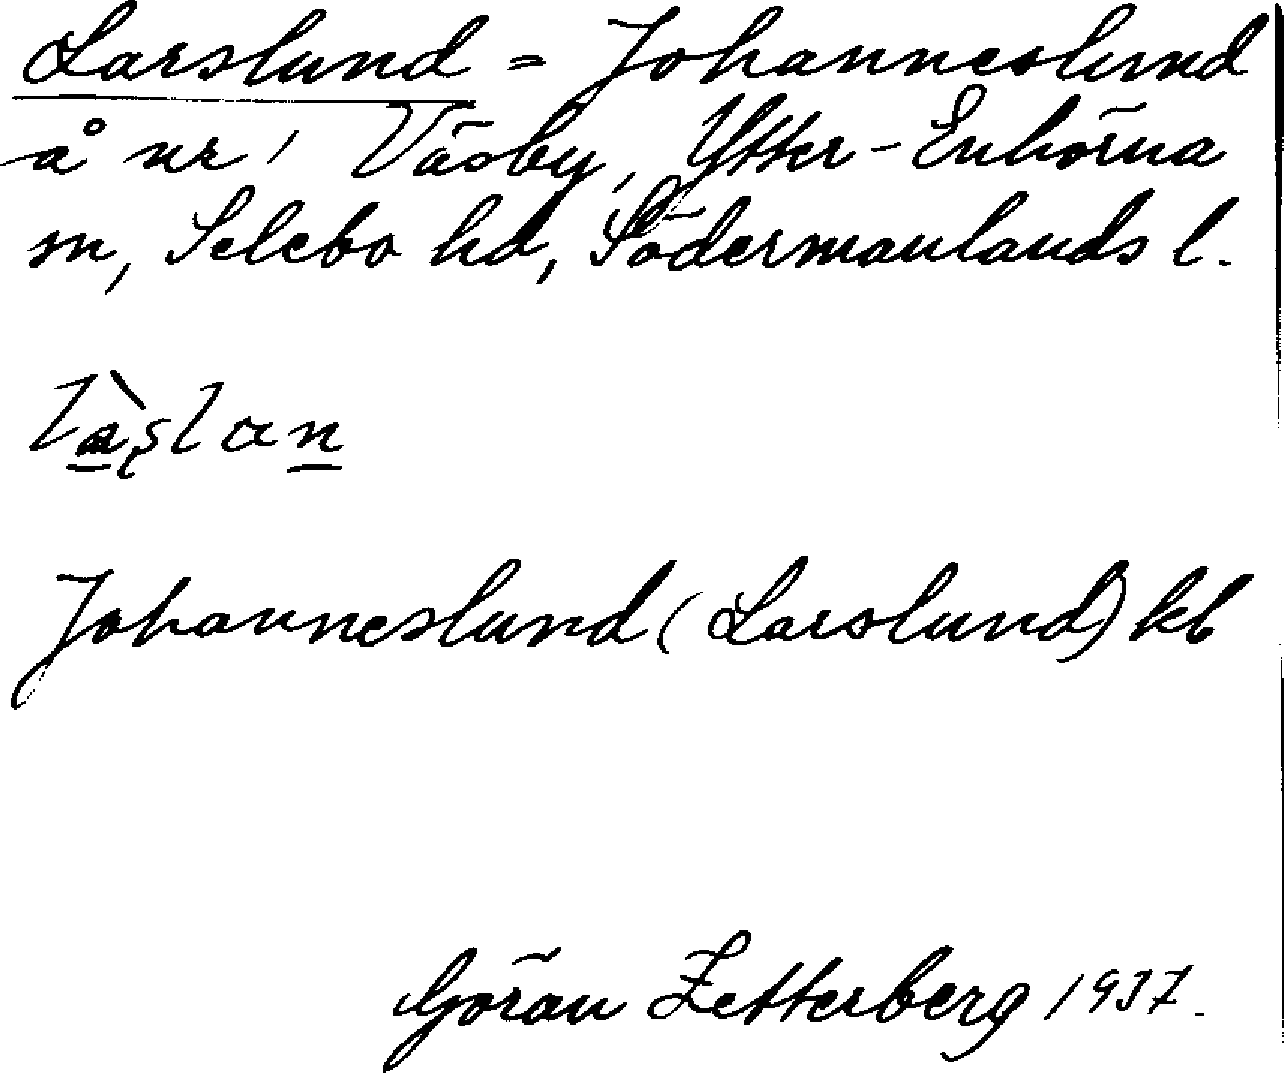 Larslund = Johanneslund
å nr 1 Väsby, Ytter-Enhörna
sn, Selebo hd, Södermanlands l.
làşlan
Johanneslund (Larslund) kb
Göran Zetterberg 1937.